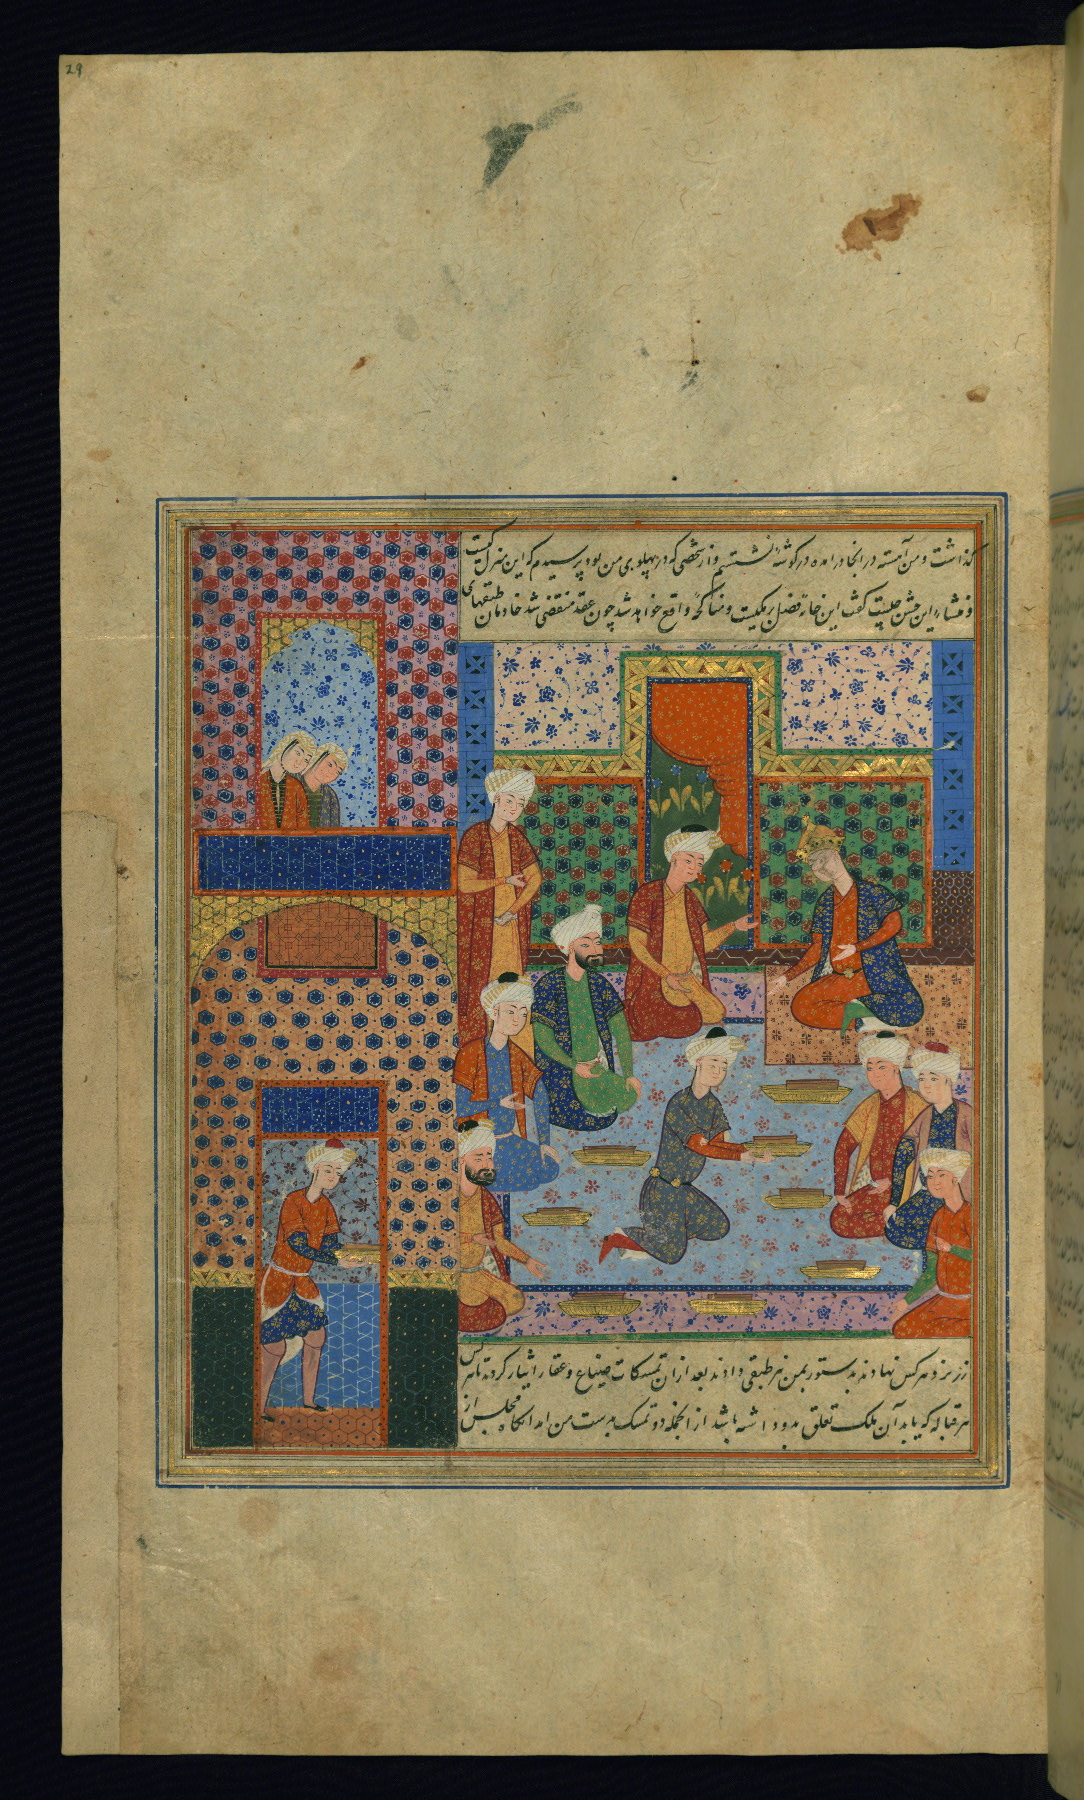 29
گذاشت و من آهسته در انجا درامده در گوشهٔ نشستم و از شخصی که در پهلوی من بود پرسیدم که این منزل کیست
و منشاء این جشن چیست گفت این خانهٔ فضل برمکیست و مناکحهٔ واقع خواهد شد چون عقد منقضی شد خادمان طبقهای
زر نزد هر کس نهادند بدستور بمن نیز طبقی دادند بعد ازان تمسکات ضیاع و عقار ایثار کردند تا هر کس
هر قباله که یابد آن ملک تعلق بدو داشته باشد از انجمله دو تمسک بدست من امد انکاه مجلس از